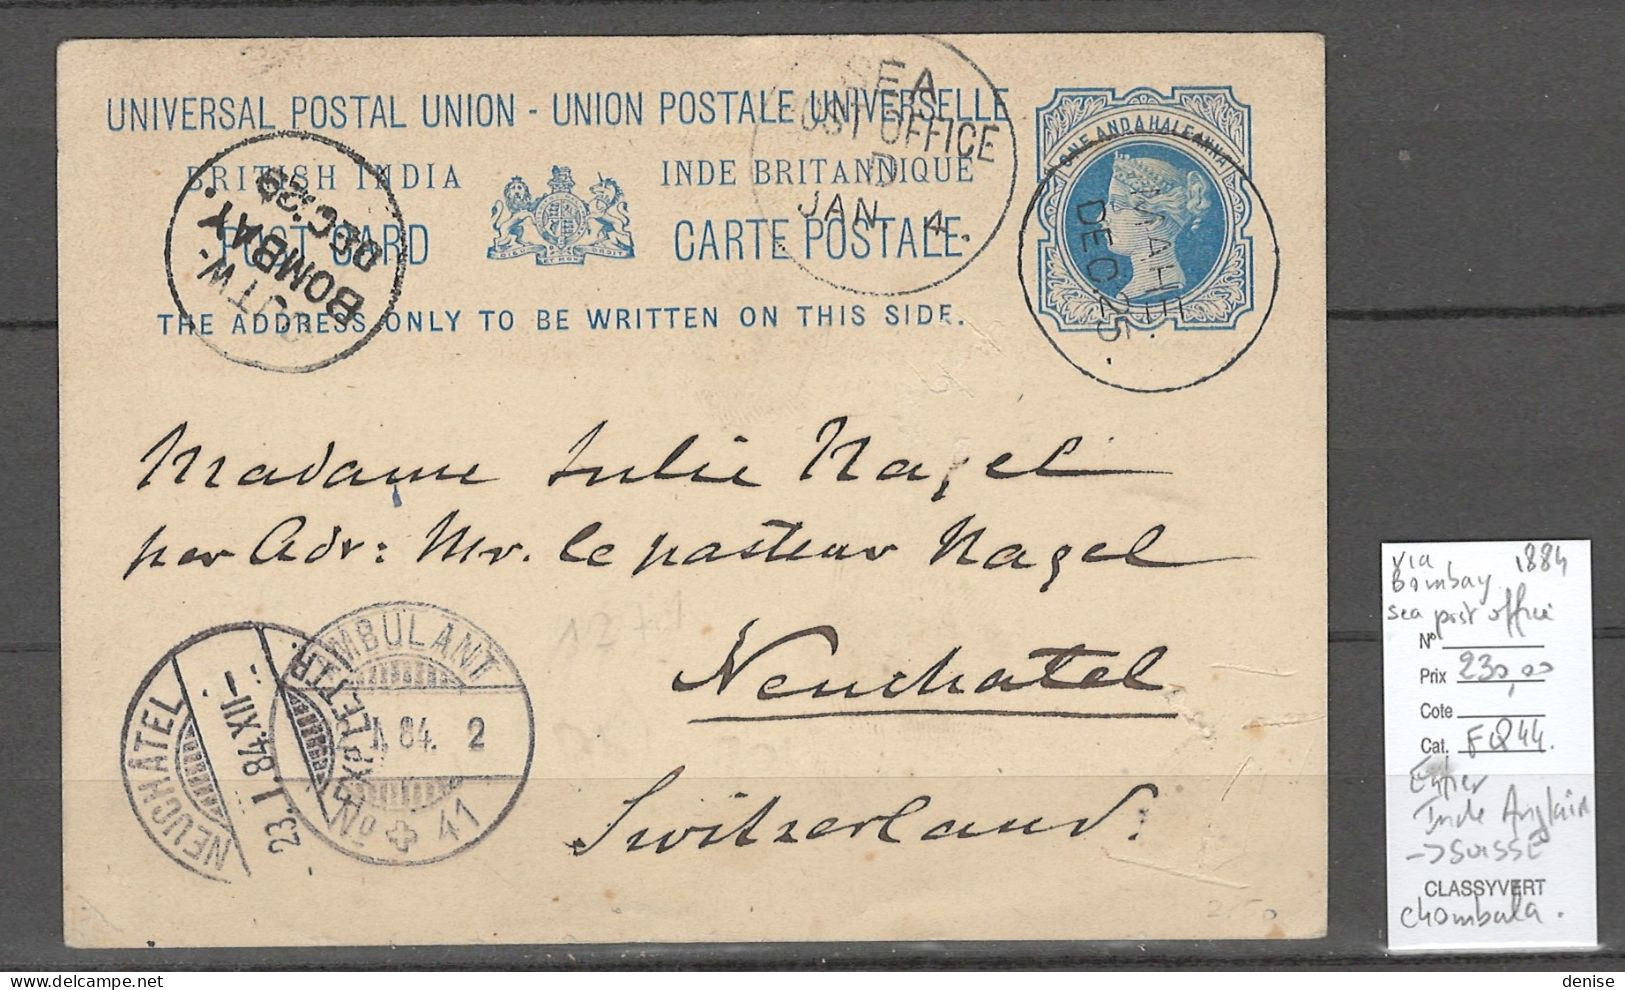 UNIVERSAL POSTAL UNION - UNION POSTALE UNIVERSELLE
BRITISH INDIA INDE BRITANNIQUE
POST CARD CARTE POSTALE
THE ADDRESS ONLY TO BE WRITTEN ON THIS SIDE.
ONE AND A HALF ANNA
SEA
POST OFFICE
D
JAN. 4.
MAHE.
DEC. 25.
BOMBAY.
DEC.
Madame Julie Nagel
per Adr: Mr. le pasteur Nagel
Neuchatel
Switzerland.
AMBULANT
84. 2
No 41
NEUCHATEL
23.I.84.XII-
EXP. LETTR.
via 1884
Bombay
sea post office
No
Prix 230,00
Cote
Cat. FQ44.
Entier
Inde Anglaise
-> SUISSE
CLASSYVERT
Chombala.
denise